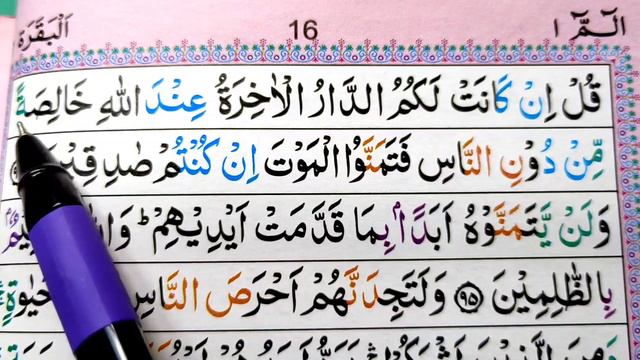 الٓـمّٓ ١
16
اَلْبَقَرَة
قُلْ اِنْ كَانَتْ لَكُمُ الدَّارُ الْاٰخِرَةُ عِنْدَ اللّٰهِ خَالِصَةً
مِّنْ دُوْنِ النَّاسِ فَتَمَنَّوُا الْمَوْتَ اِنْ كُنْتُمْ صٰدِقِيْنَ
وَلَنْ يَّتَمَنَّوْهُ اَبَدًۢا بِمَا قَدَّمَتْ اَيْدِيْهِمْ ؕ
بِالظّٰلِمِيْنَ ۝۹۵ وَلَتَجِدَنَّهُمْ اَحْرَصَ النَّاسِ حَيٰوةٍ